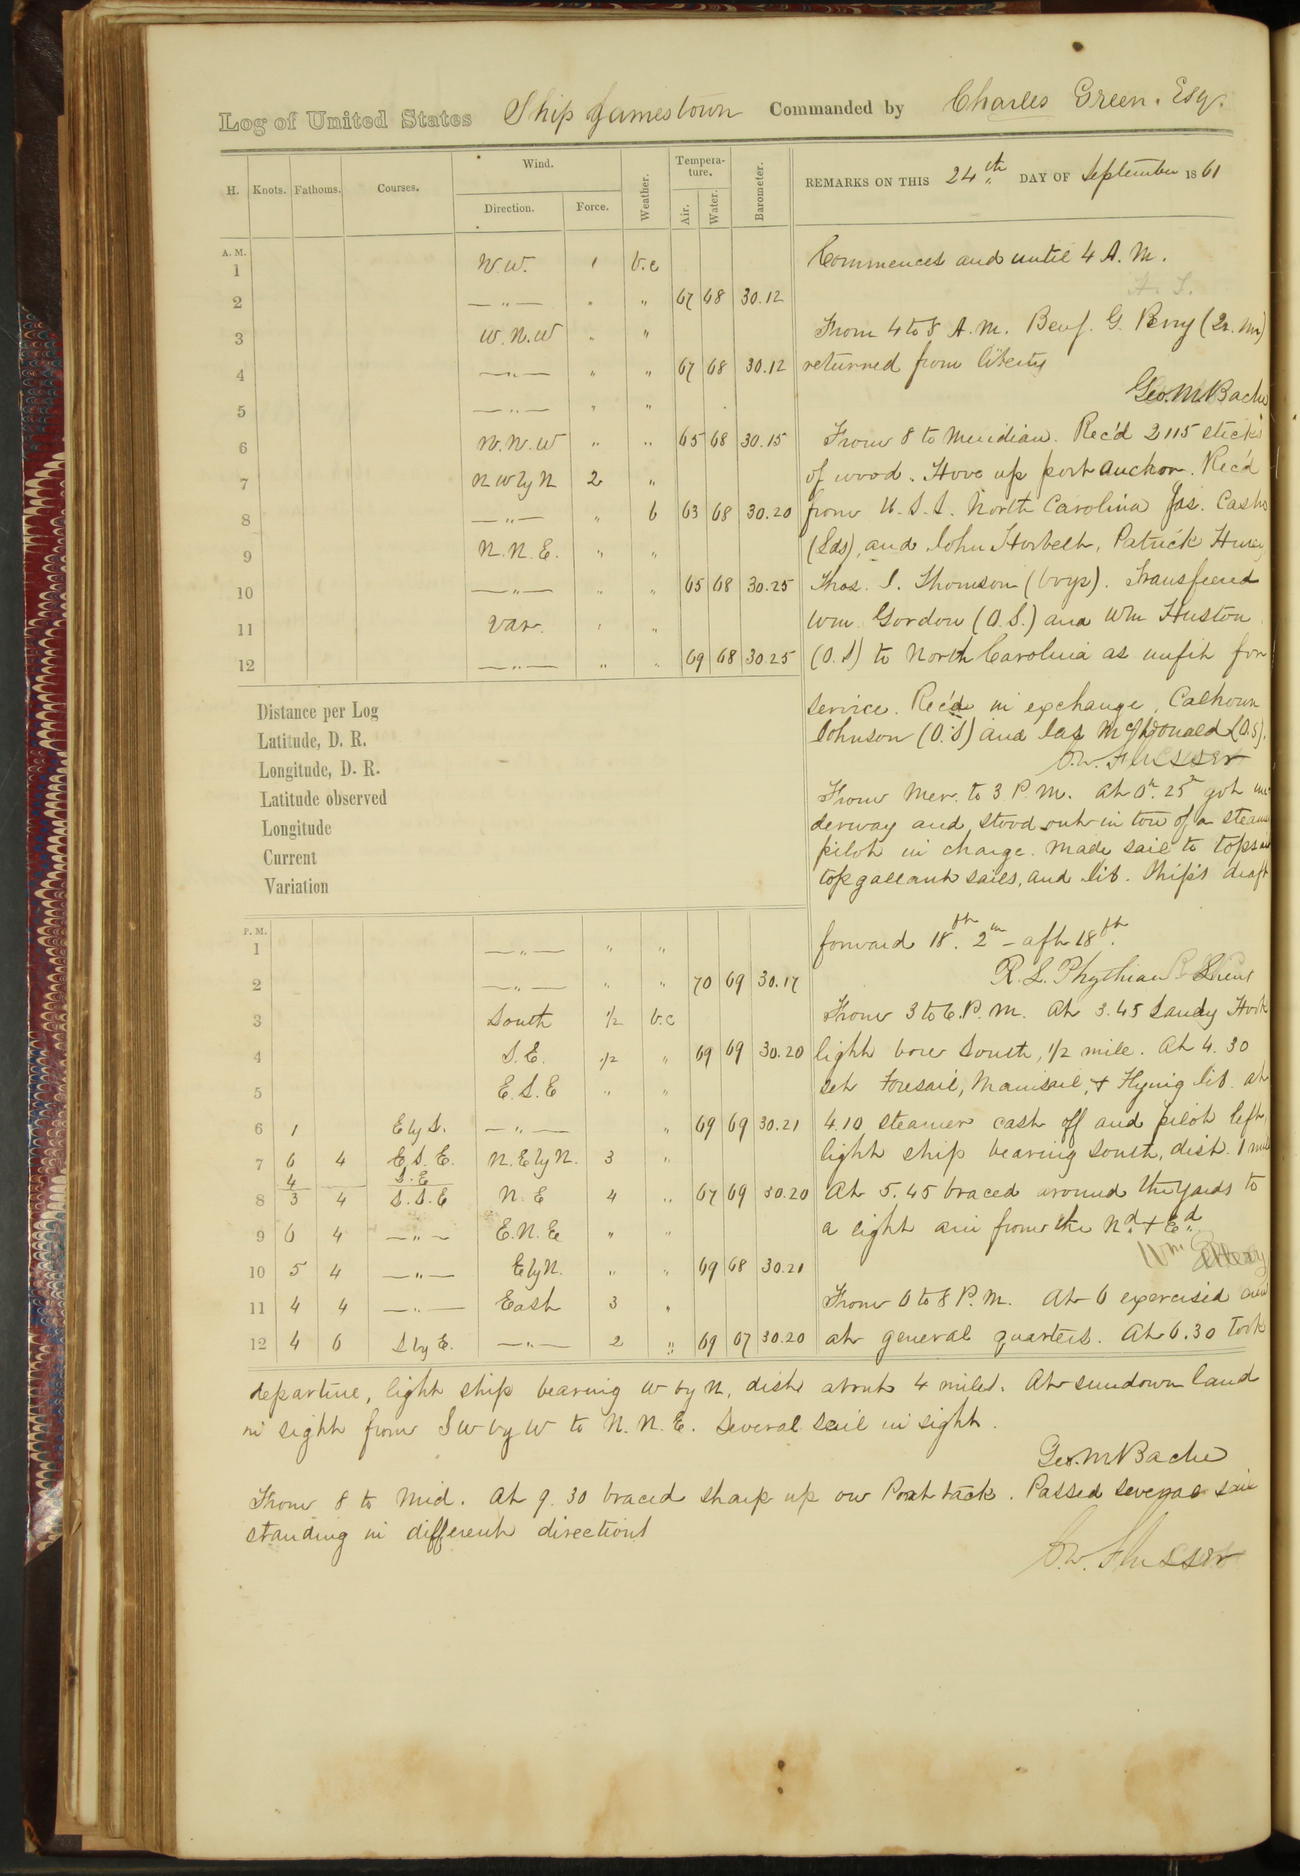 Log of United States Ship Jamestown Commanded by Charles Green. Esq.
H. Knots. Fathoms. Courses. Wind. Direction. Force. Weather. Temperature. Air. Water. Barometer.
REMARKS ON THIS 24th DAY OF September 1861
A. M.
1 N.W. 1 b.c
2 — " — " " 67 68 30.12
3 W.N.W " "
4 — " — " " 67 68 30.12
5 — " — " "
6 W.N.W " " 65 68 30.15
7 N W by N 2 "
8 — " — " b 63 68 30.20
9 N.N.E. " "
10 — " — " " 65 68 30.25
11 Var. ' "
12 — " — " " 69 68 30.25
Commences and until 4 A. M.
From 4 to 8 A. M. Benj. G. Perry
returned from liberty
Geo. M Bache
From 8 to Meridian. Rec'd 2115 sticks
of wood. Hove up port anchor. Rec'd
from U. S. S. North Carolina Jas.
(Lds), and John Patrick
Thos. I. Thomson (boys). Transfered
Wm. Gordon (O.S.) and Wm Huston
(O.S) to North Carolina as unfit for
service. Rec'd in exchange, Calhoun
Johnson (O.S) and Jas McDonald (O.S).
C. W. Flusser
From Mer. to 3 P. M. At 0h. 25m got un
derway and stood out in tow of a steamer
pilot in charge. Made sail to topsails
top gallant sails, and Jib. Ship's draft
forward 18ft. 2in — aft 18ft.
R. L. Phythian
From 3 to 6. P. M. At 3.45 Sandy Hook
light bore South, 1/2 mile. At 4.30
set Foresail, Mainsail, + Flying Jib. at
4.10 steamer cast off and pilot left,
light ship bearing South, dist. 1 mile
At 5.45 braced around the yards to
a light air from the Nd. + Ed.
Wm
From 6 to 8 P. M. At 6 exercised crew
at general quarters. At 6.30 Took
Distance per Log
Latitude, D. R.
Longitude, D. R.
Latitude observed
Longitude
Current
Variation
P. M.
1 — " — " "
2 — " — " " 70 69 30.17
3 South 1/2 b.c
4 S.E. 1/2 " 69 69 30.20
5 E.S.E " "
6 1 E by S. — " — " 69 69 30.21
7 6 4 E.S.E. N.E by N. 3 "
4 S.E
8 3 4 S.S.E N.E 4 " 67 69 30.20
9 6 4 — " — E.N.E " "
10 5 4 — " — E by N. " " 69 68 30.21
11 4 4 — " — East 3 "
12 4 6 S by E. — " — 2 " 69 67 30.20
departure, light ship bearing W by N, dist about 4 miles. At sundown land
in sight from S W by W to N. N. E. Several sail in sight.
Geo. M Bache
From 8 to Mid. At 9.30 braced sharp up on Port tack. Passed several sail
standing in different directions
C. W. Flusser